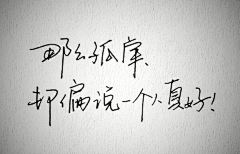 那么孤寂、
却偏说一个人真好!